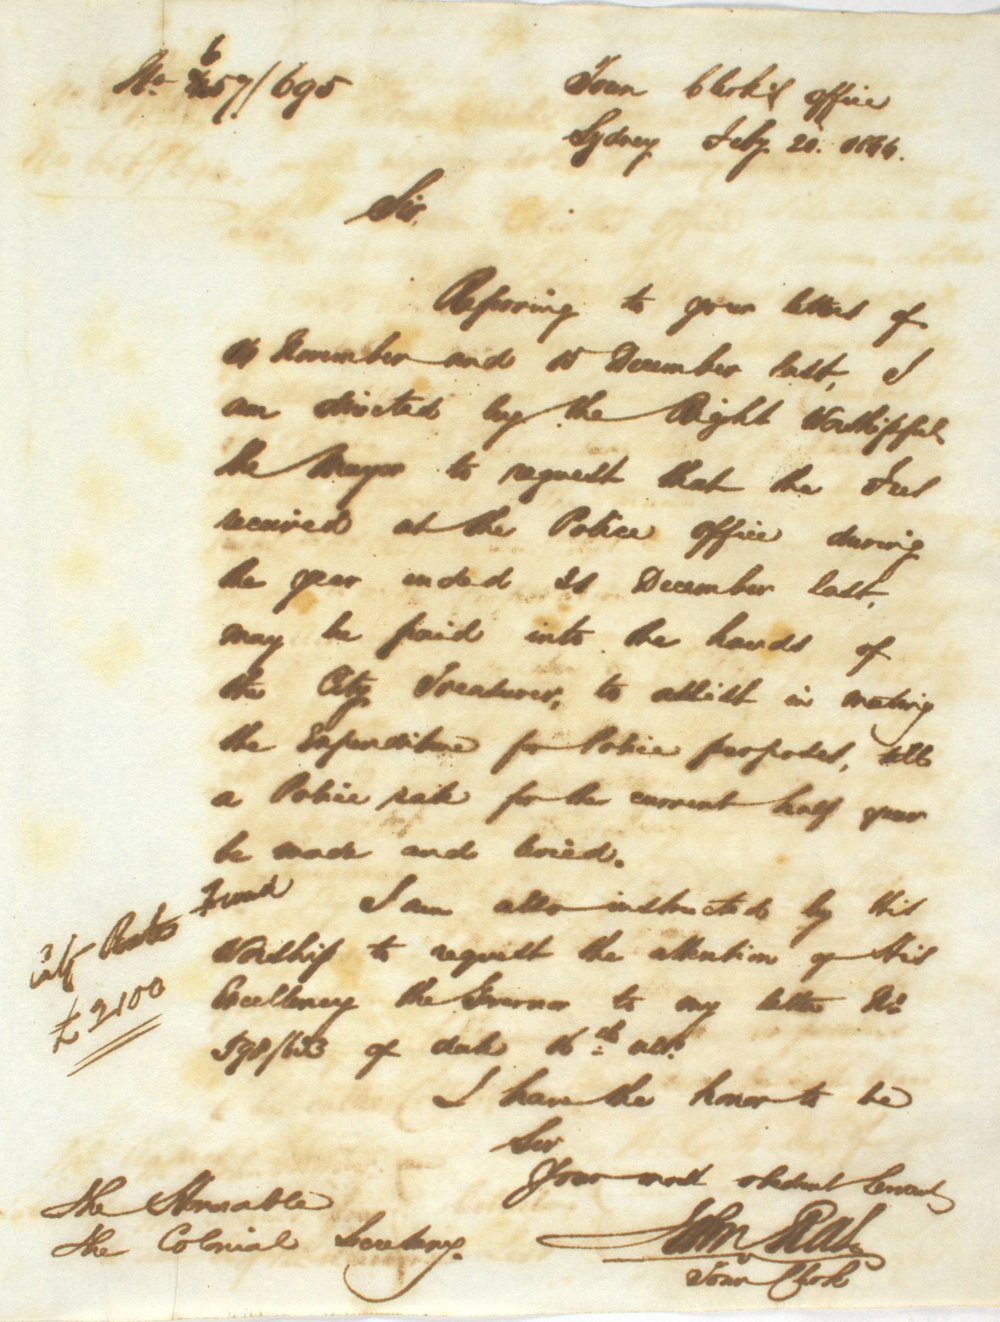 No. 657/695
Town Clerk's office
Sydney Feby. 20. 1844.
Sir,
Referring to your letters of
November and 15 December last, I
am directed by the Right Worshipful
the Mayor to request that the Fees
received at the Police office during
the year ended 31 December last,
may be paid into the hands of
the City Treasurer, to assist in meeting
the Expenditure for Police purposes, till
a Police rate for the current half year
be made and levied.
I am also instructed by His
Worship to request the attention of His
Excellency the Governor to my letter No
598/633 of date 16th ult.
City Rate Fund
£2100
I have the honor to be
Sir
Your most obedient Servant
John Rae
Town Clerk
The Honorable
the Colonial Secretary.